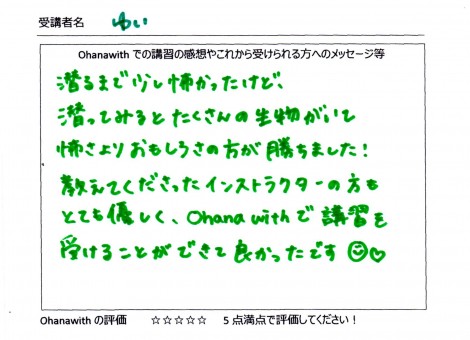 受講者名 ゆい
Ohanawith での講習の感想やこれから受けられる方へのメッセージ等
潜るまで少し怖かったけど、
潜ってみるとたくさんの生物がいて
怖さよりおもしろさの方が勝ちました!
教えてくださったインストラクターの方も
とても優しく、Ohana withで講習を
受けることができて良かったです☺♡
Ohanawith の評価 ☆☆☆☆☆ 5 点満点で評価してください！